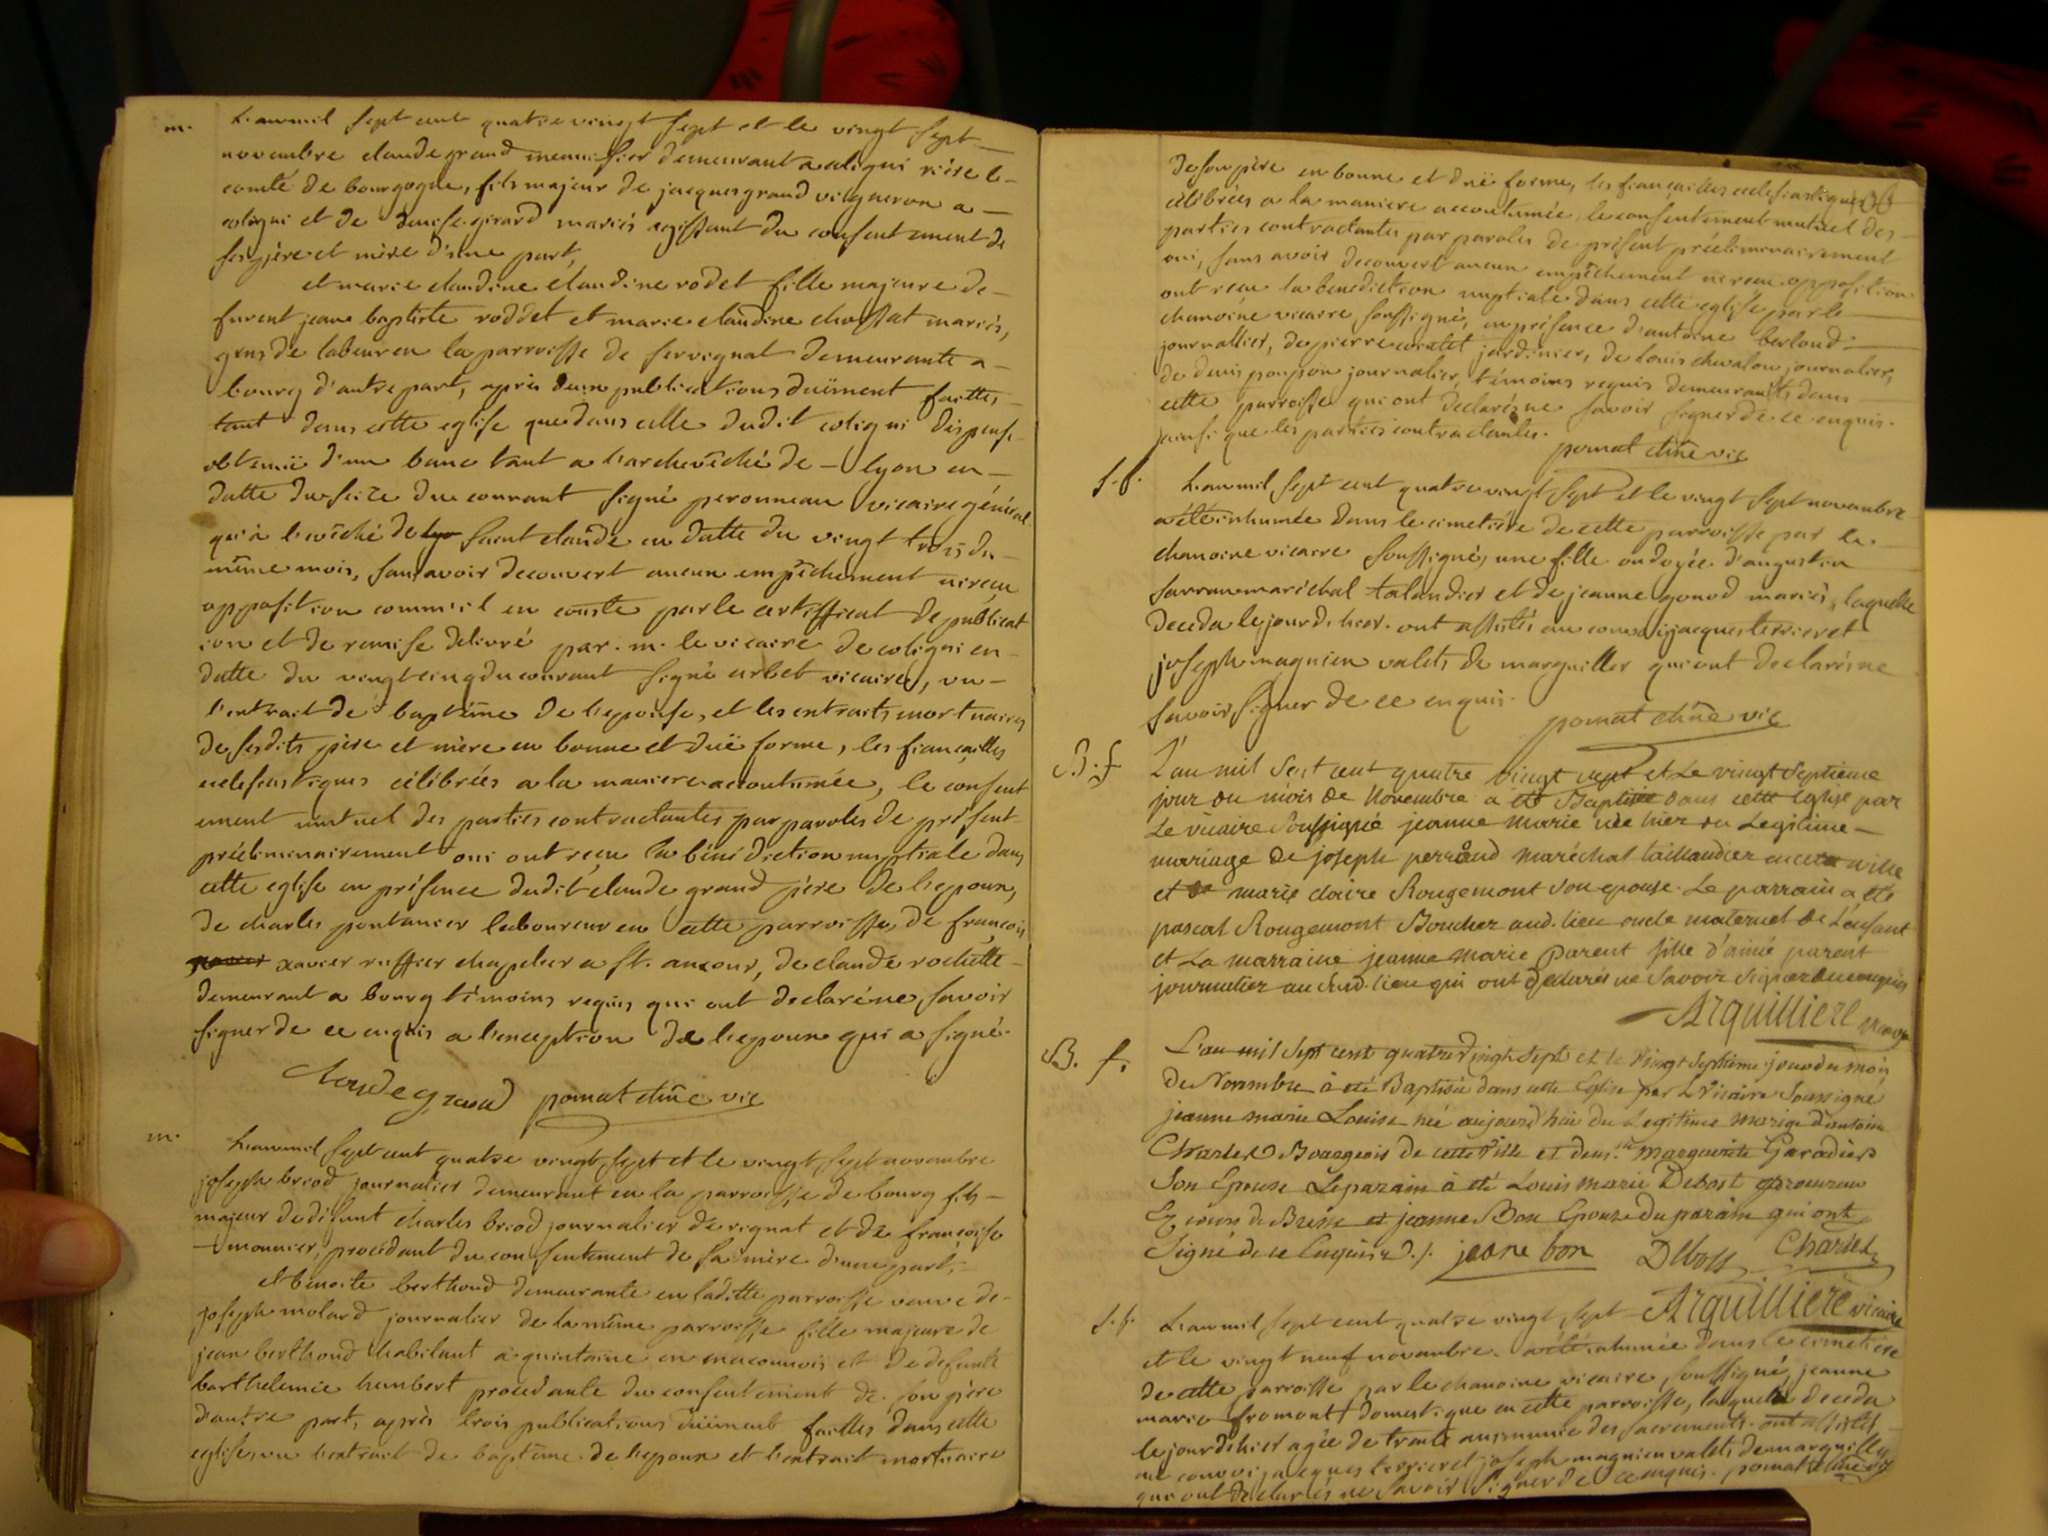 m.
L'an mil sept cent quatre vingt sept et le vingt sept
novembre claude grand menuisier demeurant a coligni rière le
comté de bourgogne, fils majeur de jacques grand vigneron a
coligni et de denise girard mariés agissant du consentement de
ses père et mère d'une part,
et marie claudine claudine rodet fille majeure de
furent jean baptiste roddet et marie claudine chossat mariés,
gens de labeur en la parroisse de servignat demeurante a
bourg d'autre part, après deux publications duëment faittes
tant dans cette eglise que dans celle dudit coligni dispense
obtenuë d'un banc tant a l'archevêché de lyon en
datte du seize du courant signé peronneau vicaire général
qu'à l'evêché de saint claude en datte du vingt trois du
même mois, sans avoir decouvert aucun empêchement ni reçu
opposition comme il en conste par le certifficat de publicat
ion et de remise delivré par m. le vicaire de coligni en
datte du vingt cinq du courant signé arbet vicaire, vu
l'extrait de baptême de l'epouse, et les extraits mortuaires
de sesdits père et mère en bonne et duë forme, les fiançailles
eclesiastiques célébrées a la maniere accoutumée, le consent
ement mutuel des parties contractantes par paroles de présent
préliminairement oui ont reçu la bénédiction nuptiale dans
cette eglise en présence dudit claude grand père de l'epoux,
de charles pontancier laboureur en cette parroisse, de françois
xavier ruffier chapelier a st. amour, de claude rochette
demeurant a bourg témoins requis qui ont declaré ne savoir
signer de ce enquis a l'exception de l'epoux qui a signé.
Claude grand pomat chne vic
m.
L'an mil sept cent quatre vingt sept et le vingt sept novembre
joseph briod journalier demeurant en la parroisse de bourg fils
majeur de difunt charles briod journalier de rignat et de françoise
monnier, procédant du consentement de sa mère d'une part,
et benoite berthoud demeurante en laditte parroisse veuve de
joseph molard journalier de la même parroisse fille majeure de
jean berthoud habitant a quintaine en maconnois et de defunte
barthelemie humbert procédante du consentement de son père
d'autre part, après trois publications duëment faittes dans cette
eglise, vu l'extrait de baptême de l'epoux et l'extrait mortuaire
de son père en bonne et duë forme, les fiancailles eclesiastiques
célébrées a la maniere accoutumée, le consentement mutuel des
parties contractantes par paroles de présent préliminairement
oui, sans avoir decouvert aucun empêchement ni reçu opposition
ont reçu la benediction nuptiale dans cette eglise par le
chanoine vicaire soussigné, en présence d'antoine berloud
journallier, de pierre jardinier, de louis chevalon journalier,
de denis poupon journalier, témoins requis demeurants dans
cette parroisse qui ont declaré ne savoir signer de ce enquis.
ainsi que les parties contractantes. pomat chne vic
L'an mil sept cent quatre vingt sept et le vingt sept novembre
a été inhumée dans le cimetière de cette parroisse par le
chanoine vicaire soussigné, une fille ondoyée d'augustin
sarran maréchal talandier et de jeanne gonod mariés, laquelle
deceda le jour d'hier. ont assistés au convoi jacques terrier et
joseph magnien valets de marguillier qui ont declaré ne
savoir signer de ce enquis.
pomat chne vic
B. f
L'an mil sept cent quatre vingt sept et Le vingt Septieme
jour du mois de Novembre a été Baptisée dans cette Eglise par
Le vicaire soussigné jeanne marie née hier du Legitime
mariage de joseph perraud maréchal taillandier en cette ville
et de marie claire Rougemont son epouse. Le parrain a été
pascal Rougemont Boucher aud. lieu oncle maternel de L'enfant
et La marraine jeanne marie Parent fille d'aimé parent
journalier au susd. lieu qui ont déclarés ne Savoir Signer de ce enquis
Arquilliere vicaire
B. f.
L'an mil Sept cent quatre Vingt Sept et le Vingt Septième jour du mois
de Novembre à été Baptisée dans cette Eglise par Le Vicaire Soussigné
jeanne marie Louise née aujourd'hui du Legitime Mariage d'antoine
Charles Bourgeois de cette Ville et dem.lle Margueritte Garadier
Son Epouse Le parain à été Louis marie Debost procureur
Ez cours de Bresse et jeanne Bon Epouse du parain qui ont
Signé de ce Enquis jeane bon Debost Charles
Arquilliere vicaire
L'an mil sept cent quatre vingt sept
et le vingt neuf novembre a été inhumée dans le cimetière
de cette parroisse par le chanoine vicaire soussigné, jeanne
marie fromont domestique en cette parroisse, laquelle deceda
le jour d'hier agée de trente ans munie des sacrements. ont assistés
au convoi jacques terrier et joseph magnien valets de marguiller
qui ont declarés ne savoir signer de ce enquis. pomat chne vic